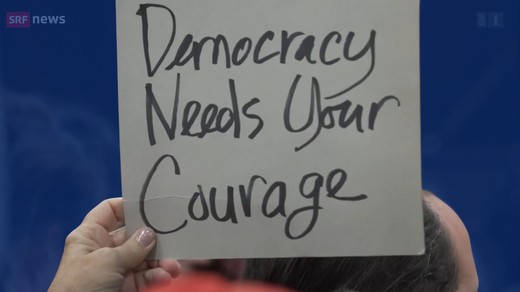 SRF news
Democracy
Needs Your
Courage